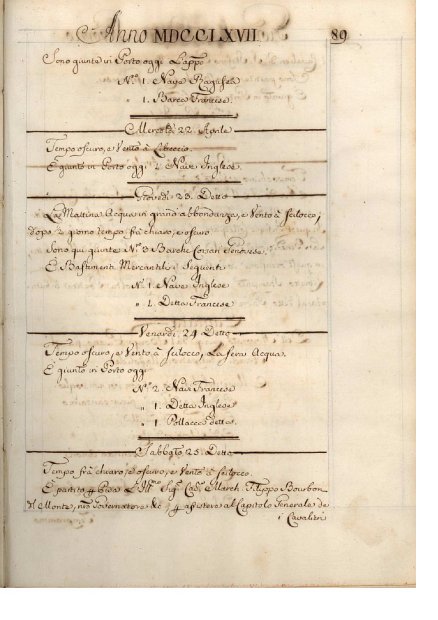 Anno MDCCLXVII. 89
Sono giunte in Porto oggi L'appo
N.º 1. Nave Ragusea
" 1. Barca Francese.
Mercoldi 22. Aprile
Tempo oscuro, e Vento à Libeccio.
È giunto in Porto oggi 1. Nave Inglese.
Giovedi 23. Detto
La Mattina Acqua in grand'abbondanza, e Vento à scilocco,
dopo 2 giorno tempo frà chiaro, e oscuro
Sono qui giunte N.º 3 Barche Corsari Genovesi.
E Bastimenti Mercantili i Seguenti
N.º 1. Nave Inglese
" 1. Detta Francese
Venardi 24 Detto
Tempo oscuro, e Vento à scilocco, La sera Acqua.
È giunto in Porto oggi
N.º 2. Navi Francese
" 1. Detta Inglese
" 1. Pollacca detta.
Sabbato 25. Detto
Tempo frà chiaro, e oscuro, e Vento à scilocco.
È partito p Pisa L'Ill.mo Sig. Cav. March. Filippo Bourbon
del Monte, nro Governatore &c p assistere al Capitolo Generale de
i Cavalieri